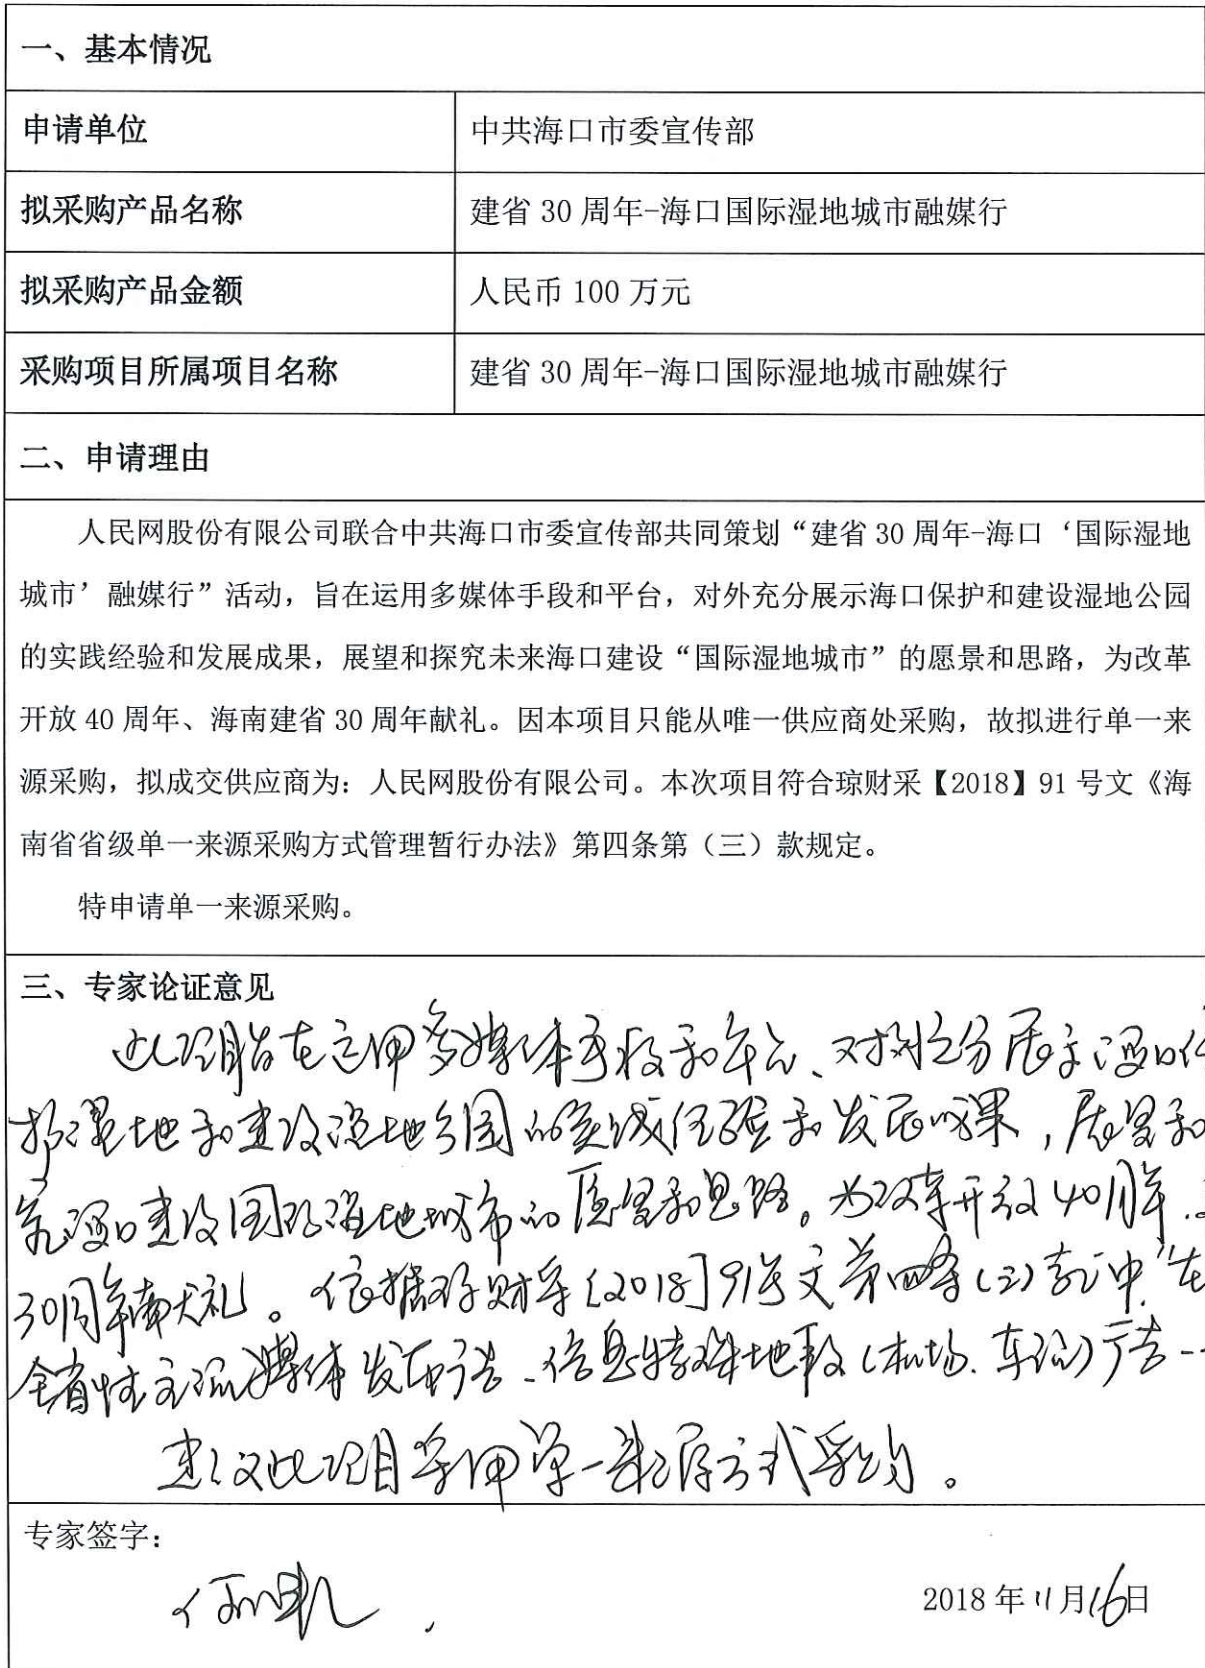 一、基本情况
申请单位 中共海口市委宣传部
拟采购产品名称 建省 30 周年-海口国际湿地城市融媒行
拟采购产品金额 人民币 100 万元
采购项目所属项目名称 建省 30 周年-海口国际湿地城市融媒行
二、申请理由
人民网股份有限公司联合中共海口市委宣传部共同策划“建省 30 周年-海口‘国际湿地
城市’融媒行”活动，旨在运用多媒体手段和平台，对外充分展示海口保护和建设湿地公园
的实践经验和发展成果，展望和探究未来海口建设“国际湿地城市”的愿景和思路，为改革
开放 40 周年、海南建省 30 周年献礼。因本项目只能从唯一供应商处采购，故拟进行单一来
源采购，拟成交供应商为：人民网股份有限公司。本次项目符合琼财采【2018】91 号文《海
南省省级单一来源采购方式管理暂行办法》第四条第（三）款规定。
特申请单一来源采购。
三、专家论证意见
此项目旨在运用多媒体手段和平台、对外充分展示海口
护湿地和建设湿地公园的实践经验和发展成果，展望和
究海口建设国际湿地城市的愿景和思路。为改革开放40周年
30周年献大礼。依据琼财采[2018]91号文第四条(三)款中“在
全省性主流媒体发布广告、信息特殊地段(机场.车站)广告
建议此项目采用单一来源方式采购。
专家签字：
2018 年 11 月 16 日